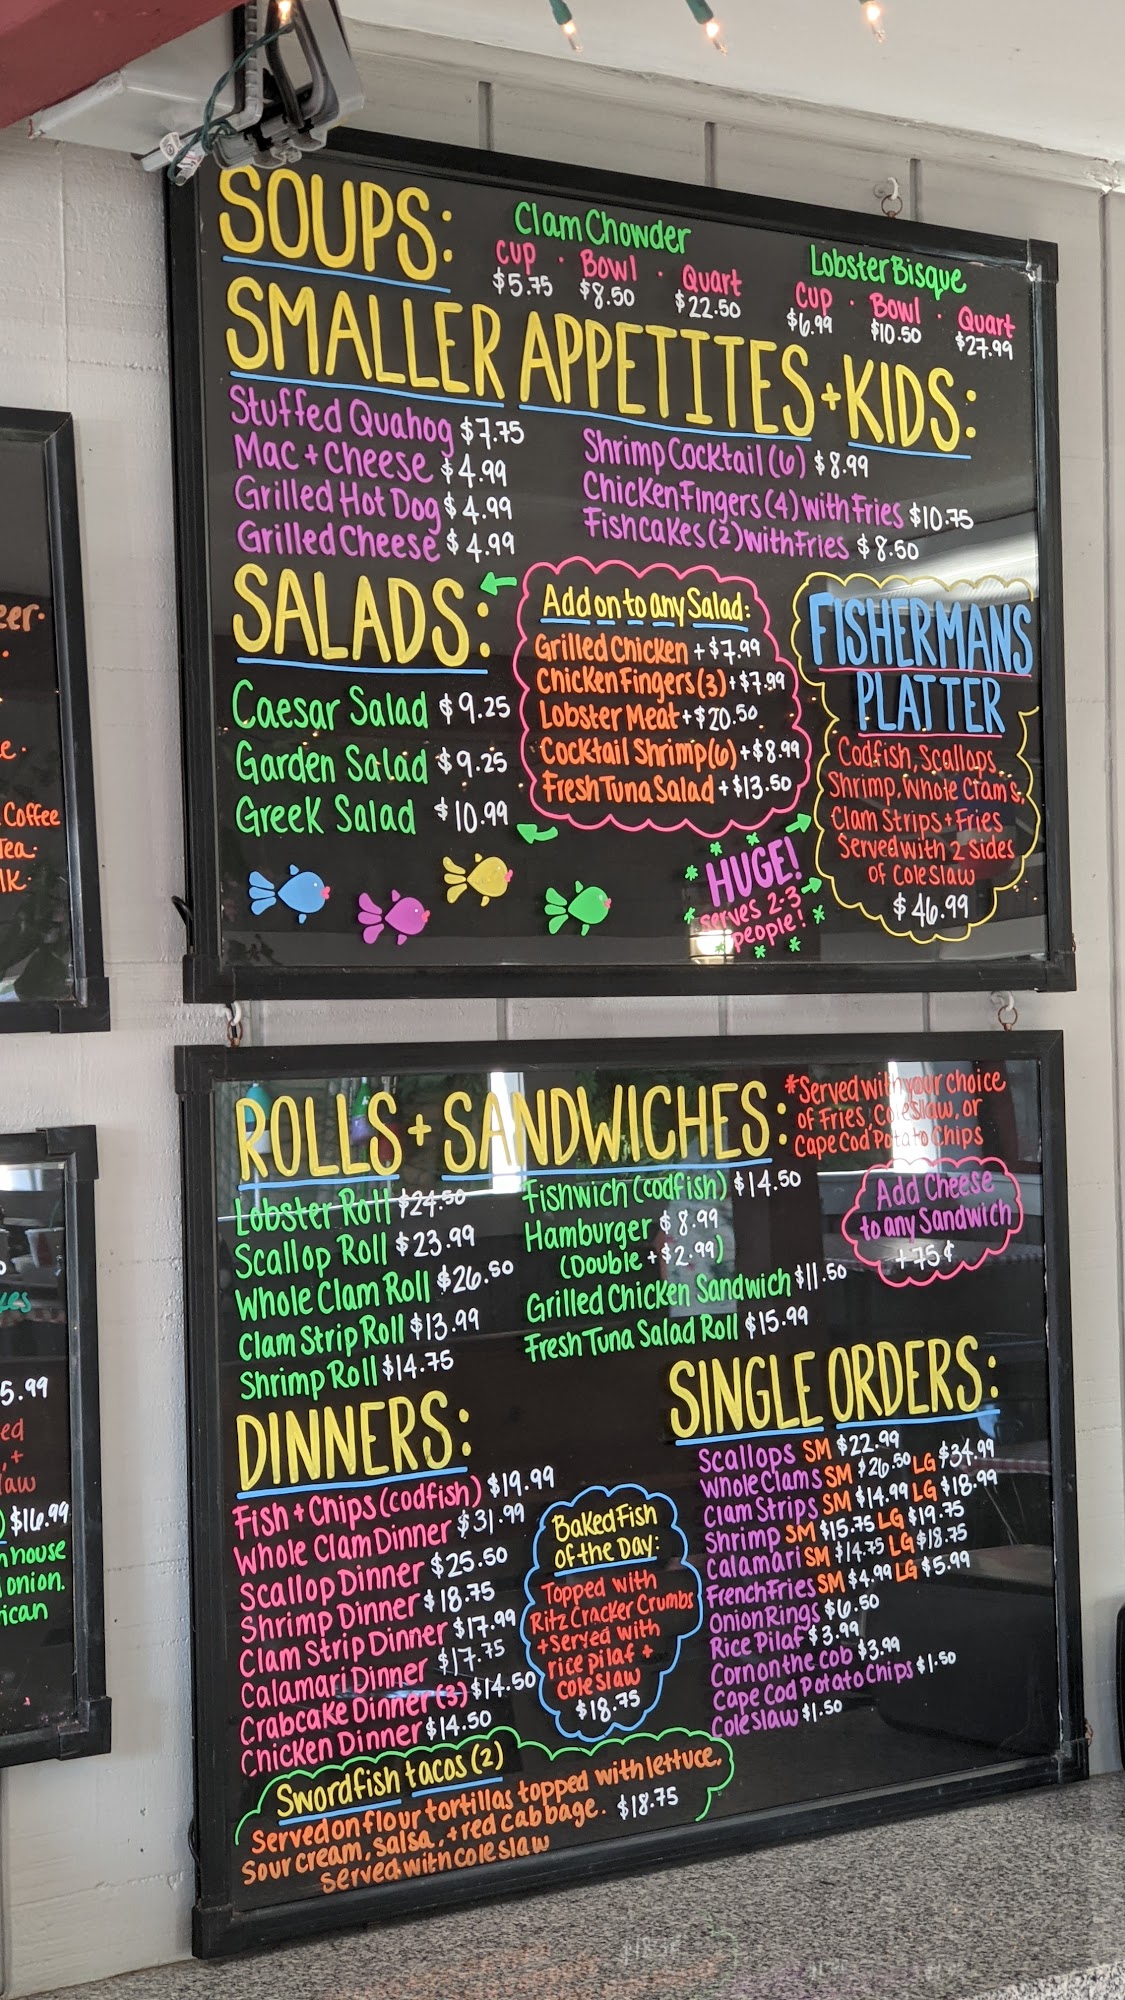 SOUPS:
Clam Chowder
Cup · Bowl · Quart
$5.75 $8.50 $22.50
Lobster Bisque
Cup · Bowl · Quart
$6.99 $10.50 $27.99
SMALLER APPETITES + KIDS:
Stuffed Quahog $7.75
Mac + Cheese $4.99
Grilled Hot Dog $4.99
Grilled Cheese $4.99
Shrimp Cocktail (6) $8.99
Chicken Fingers (4) with Fries $10.75
Fishcakes (2) with Fries $8.50
SALADS:
Caesar Salad $9.25
Garden Salad $9.25
Greek Salad $10.99
Add on to any Salad:
Grilled Chicken +$7.99
Chicken Fingers (3) +$7.99
Lobster Meat +$20.50
Cocktail Shrimp (6) +$8.99
Fresh Tuna Salad +$13.50
HUGE!
serves 2-3
people!
FISHERMANS
PLATTER
Codfish, Scallops,
Shrimp, Whole Clams,
Clam Strips + Fries
Served with 2 sides
of Coleslaw
$46.99
ROLLS + SANDWICHES:
*Served with your choice
of Fries, Coleslaw, or
Cape Cod Potato Chips
Lobster Roll $24.50
Scallop Roll $23.99
Whole Clam Roll $26.50
Clam Strip Roll $13.99
Shrimp Roll $14.75
Fishwich (codfish) $14.50
Hamburger $8.99
(Double +$2.99)
Grilled Chicken Sandwich $11.50
Fresh Tuna Salad Roll $15.99
Add Cheese
to any Sandwich
+75¢
DINNERS:
Fish + Chips (codfish) $19.99
Whole Clam Dinner $31.99
Scallop Dinner $25.50
Shrimp Dinner $18.75
Clam Strip Dinner $17.99
Calamari Dinner $17.75
Crabcake Dinner (3) $14.50
Chicken Dinner $14.50
Baked Fish
of the Day:
Topped with
Ritz Cracker Crumbs
+ served with
rice pilaf +
coleslaw
$18.75
SINGLE ORDERS:
Scallops SM $22.99
Whole Clams SM $26.50 LG $34.99
Clam Strips SM $14.99 LG $18.99
Shrimp SM $15.75 LG $19.75
Calamari SM $14.75 LG $18.75
French Fries SM $4.99 LG $5.99
Onion Rings $6.50
Rice Pilaf $3.99
Corn on the cob $3.99
Cape Cod Potato Chips $1.50
Coleslaw $1.50
Swordfish tacos (2)
Served on flour tortillas topped with lettuce,
sour cream, salsa, + red cabbage. $18.75
served with coleslaw
Coffee
$16.99
onion.